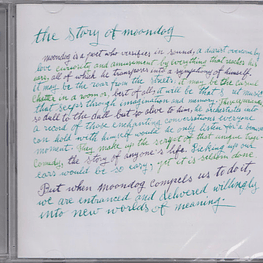 the story of moondog
moondog is a poet who versifies in sound, a diarist overcome by
love curiosity and amusement by everything that reaches his
ears, all of which he transposes into a symphony of himself.
it may be the roar from the streets, it may be the casual
chatter in a room or, best of all, it will be that secret music
that seeps through imagination and memory.
so dull to the dull but so alive to him, he orchestrates into
a record of those unchanging conversations everyone
can hold with himself would he only listen for a
moment. They make up the script of that unique
comedy, the story of anyone's life. Picking up our
ears would be so easy, yet it is seldom done
But when moondog compels us to do it,
we are entranced and delivered willingly
into new worlds of meaning.